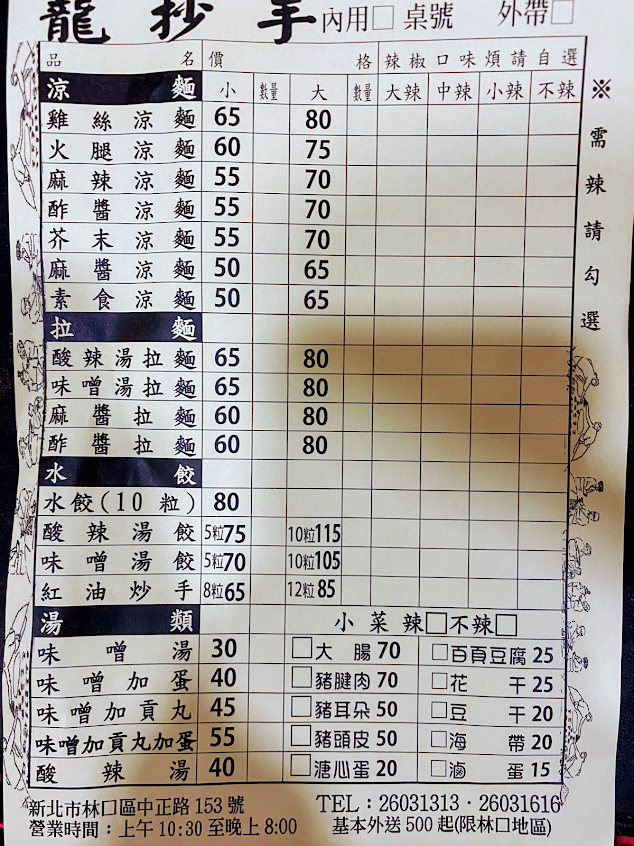 龍抄手 內用□ 桌號 外帶□
品名 價格 辣椒口味煩請自選
涼麵 小 數量 大 數量 大辣 中辣 小辣 不辣
雞絲涼麵 65 80
火腿涼麵 60 75
麻辣涼麵 55 70
酢醬涼麵 55 70
芥末涼麵 55 70
麻醬涼麵 50 65
素食涼麵 50 65
拉麵
酸辣湯拉麵 65 80
味噌湯拉麵 65 80
麻醬拉麵 60 80
酢醬拉麵 60 80
水餃
水餃(10粒) 80
酸辣湯餃 5粒75 10粒115
味噌湯餃 5粒70 10粒105
紅油炒手 8粒65 12粒85
湯類 小菜辣□不辣□
味噌湯 30 □大腸 70 □百頁豆腐 25
味噌加蛋 40 □豬腱肉 70 □花干 25
味噌加貢丸 45 □豬耳朵 50 □豆干 20
味噌加貢丸加蛋 55 □豬頭皮 50 □海帶 20
酸辣湯 40 □溏心蛋 20 □滷蛋 15
※需辣請勾選
新北市林口區中正路 153 號 TEL：26031313・26031616
營業時間：上午 10:30 至晚上 8:00 基本外送 500 起(限林口地區)